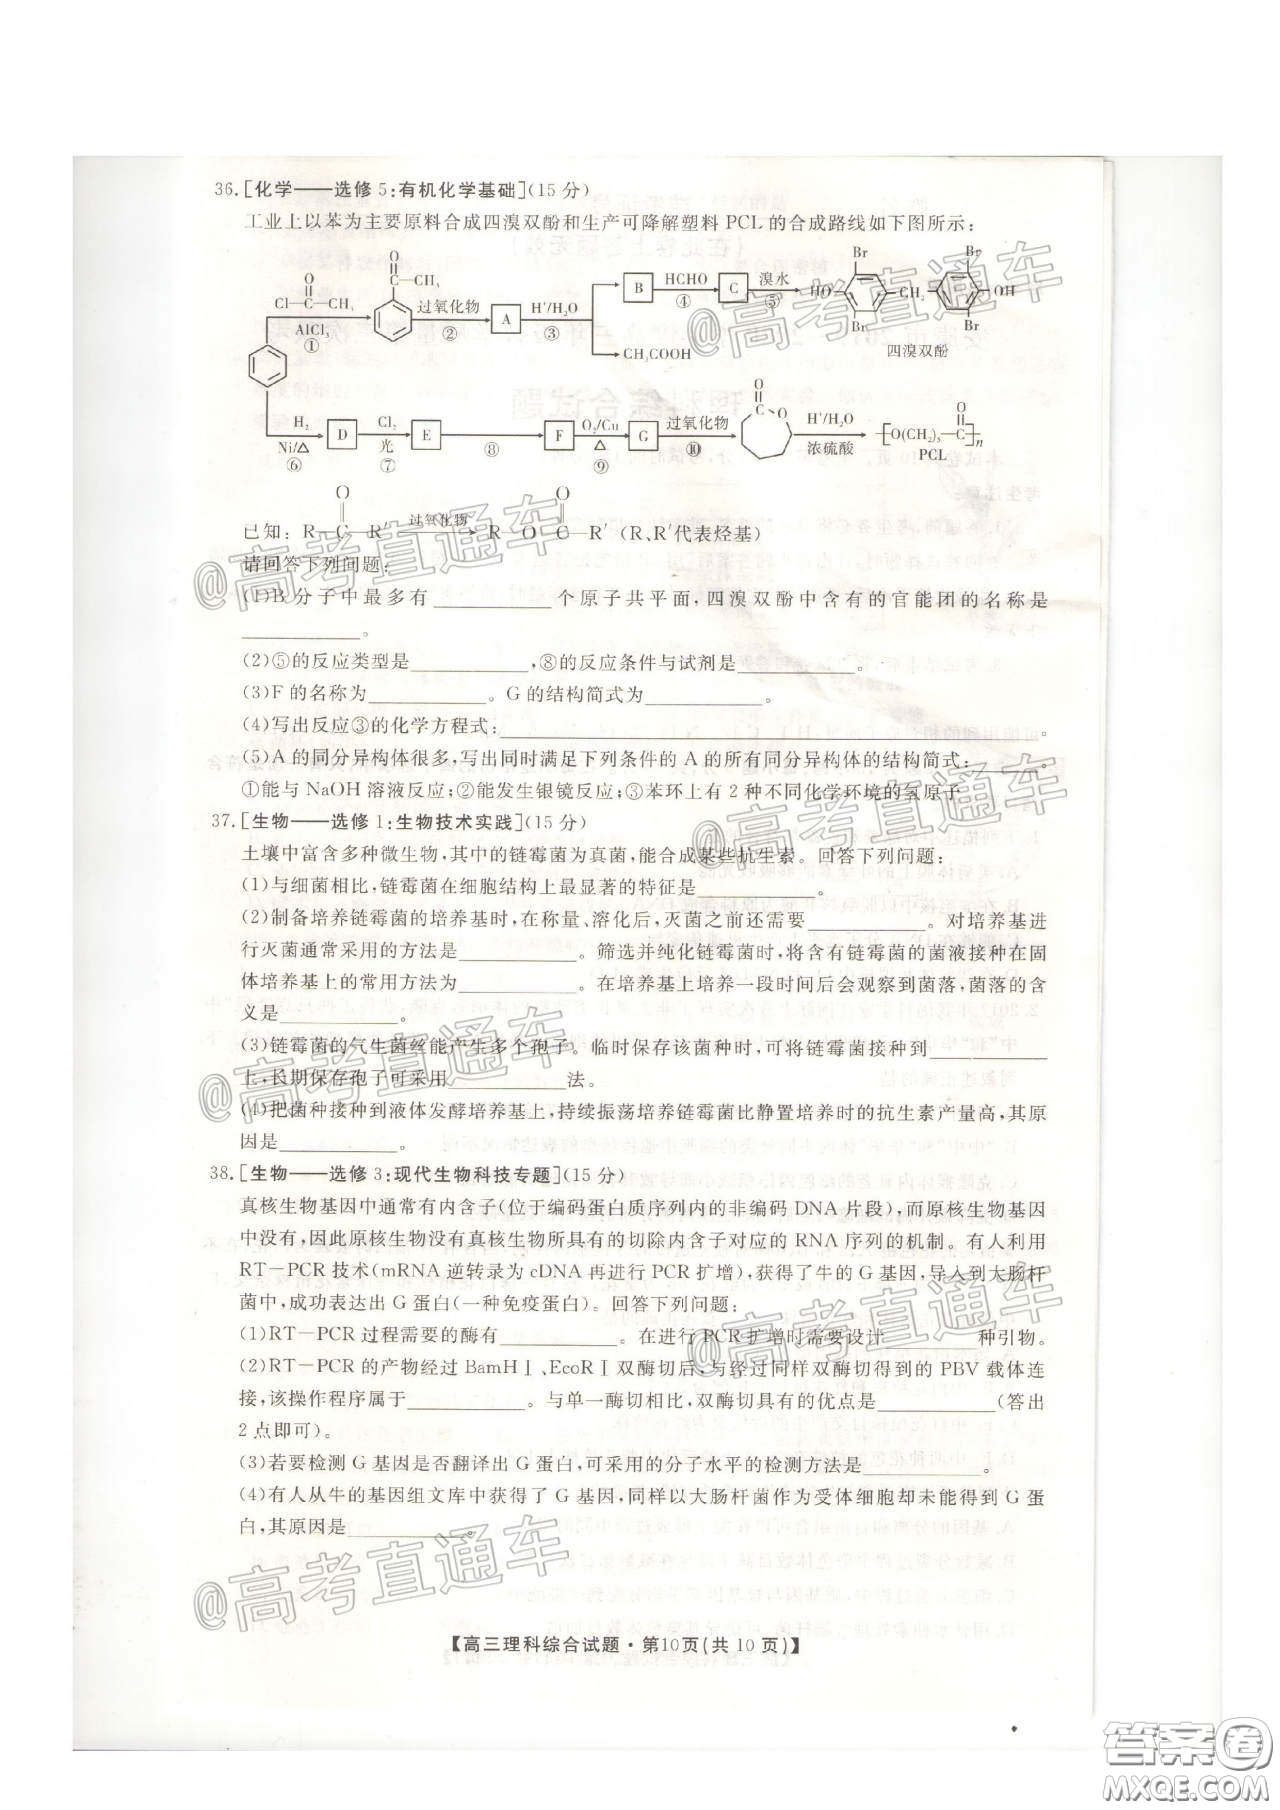 36.[化学——选修 5:有机化学基础](15 分)
工业上以苯为主要原料合成四溴双酚和生产可降解塑料 PCL 的合成路线如下图所示:
Cl—C—CH3 O
AlCl3
①
O
C
CH3
过氧化物
②
A
H+/H2O
③
B
HCHO
④
C
溴水
⑤
Br Br
HO CH2 OH
Br Br
四溴双酚
CH3COOH
H2
Ni/△
⑥
D
Cl2
光
⑦
E
⑧
F
O2/Cu
△
⑨
G
过氧化物
⑩
O
C O
H+/H2O
浓硫酸
[O(CH2)5—C]n
O
PCL
已知: R—C—R′ 过氧化物 R—O—C—R′ (R、R′代表烃基)
请回答下列问题:
(1)B 分子中最多有__________个原子共平面,四溴双酚中含有的官能团的名称是
__________。
(2)⑤的反应类型是__________,⑧的反应条件与试剂是__________。
(3)F 的名称为__________。G 的结构简式为__________。
(4)写出反应③的化学方程式:__________。
(5)A 的同分异构体很多,写出同时满足下列条件的 A 的所有同分异构体的结构简式:______。
①能与 NaOH 溶液反应;②能发生银镜反应;③苯环上有 2 种不同化学环境的氢原子
37.[生物——选修 1:生物技术实践](15 分)
土壤中富含多种微生物,其中的链霉菌为真菌,能合成某些抗生素。回答下列问题:
(1)与细菌相比,链霉菌在细胞结构上最显著的特征是__________。
(2)制备培养链霉菌的培养基时,在称量、溶化后,灭菌之前还需要__________。对培养基进
行灭菌通常采用的方法是__________。筛选并纯化链霉菌时,将含有链霉菌的菌液接种在固
体培养基上的常用方法为__________。在培养基上培养一段时间后会观察到菌落,菌落的含
义是__________。
(3)链霉菌的气生菌丝能产生多个孢子。临时保存该菌种时,可将链霉菌接种到__________
上,长期保存孢子可采用__________法。
(4)把菌种接种到液体发酵培养基上,持续振荡培养链霉菌比静置培养时的抗生素产量高,其原
因是__________。
38.[生物——选修 3:现代生物科技专题](15 分)
真核生物基因中通常有内含子(位于编码蛋白质序列内的非编码 DNA 片段),而原核生物基因
中没有,因此原核生物没有真核生物所具有的切除内含子对应的 RNA 序列的机制。有人利用
RT-PCR 技术(mRNA 逆转录为 cDNA 再进行 PCR 扩增),获得了牛的 G 基因,导入到大肠杆
菌中,成功表达出 G 蛋白(一种免疫蛋白)。回答下列问题:
(1)RT-PCR 过程需要的酶有__________。在进行 PCR 扩增时需要设计__________种引物。
(2)RT-PCR 的产物经过 BamHⅠ、EcoRⅠ双酶切后,与经过同样双酶切得到的 PBV 载体连
接,该操作程序属于__________。与单一酶切相比,双酶切具有的优点是__________(答出
2 点即可)。
(3)若要检测 G 基因是否翻译出 G 蛋白,可采用的分子水平的检测方法是__________。
(4)有人从牛的基因组文库中获得了 G 基因,同样以大肠杆菌作为受体细胞却未能得到 G 蛋
白,其原因是__________。
【高三理科综合试题·第10页(共 10 页)】
@高考直通车
@高考直通车
@高考直通车
@高考直通车
@高考直通车
@高考直通车
@高考直通车
答案卷
MXQE.COM